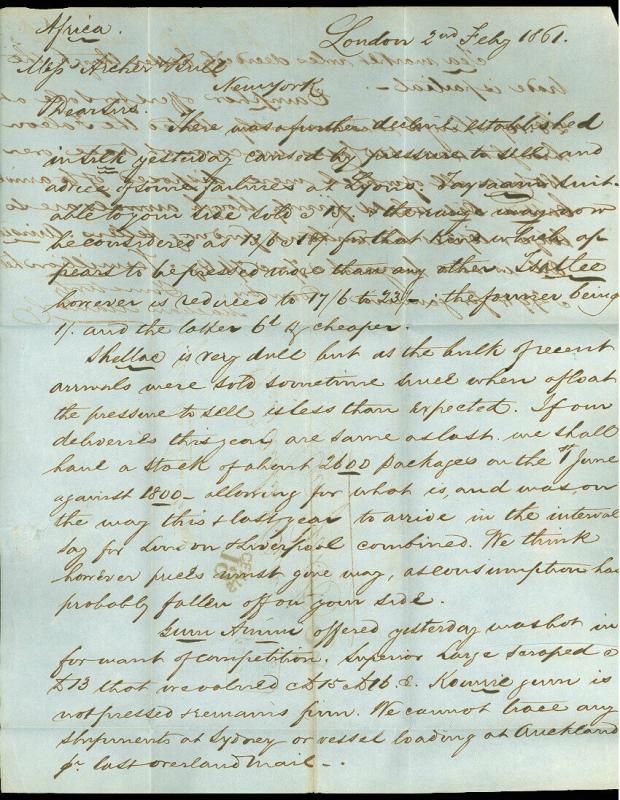 Africa.
London 2nd Feby 1861.
Messrs Archer & Bull
New York
Dear Sirs
There was a further decline established
in silk yesterday caused by pressure to sell and
advice of some failures at Lyons. Taysaam suit-
able to your side sold @ 15/ & the range may now
be considered as 13/6 @ 19/ for that kind which ap
pears to be pressed more than any other Tsatlee
however is reduced to 17/6 to 23/- the former being
1/. and the latter 6d cheaper.
Shellac is very dull but as the bulk of recent
arrivals were sold sometime since when afloat
the pressure to sell is less than expected. If our
deliveries this year are same as last we shall
have a stock of about 2600 packages on the 1st June
against 1800 - allowing for what is, and was, on
the way this & last year to arrive in the interval
say for London & Liverpool combined. We think
however prices must give way, as consumption has
probably fallen off on your side.
Gum Animi offered yesterday was bot in
for want of competition. Superior Large scraped @
£13 that we valued @ £15 @ £16. &. Kowrie gum is
not pressed & remains firm. We cannot trace any
shipments at Sydney or vessel loading at Auckland
pr last overland mail -.